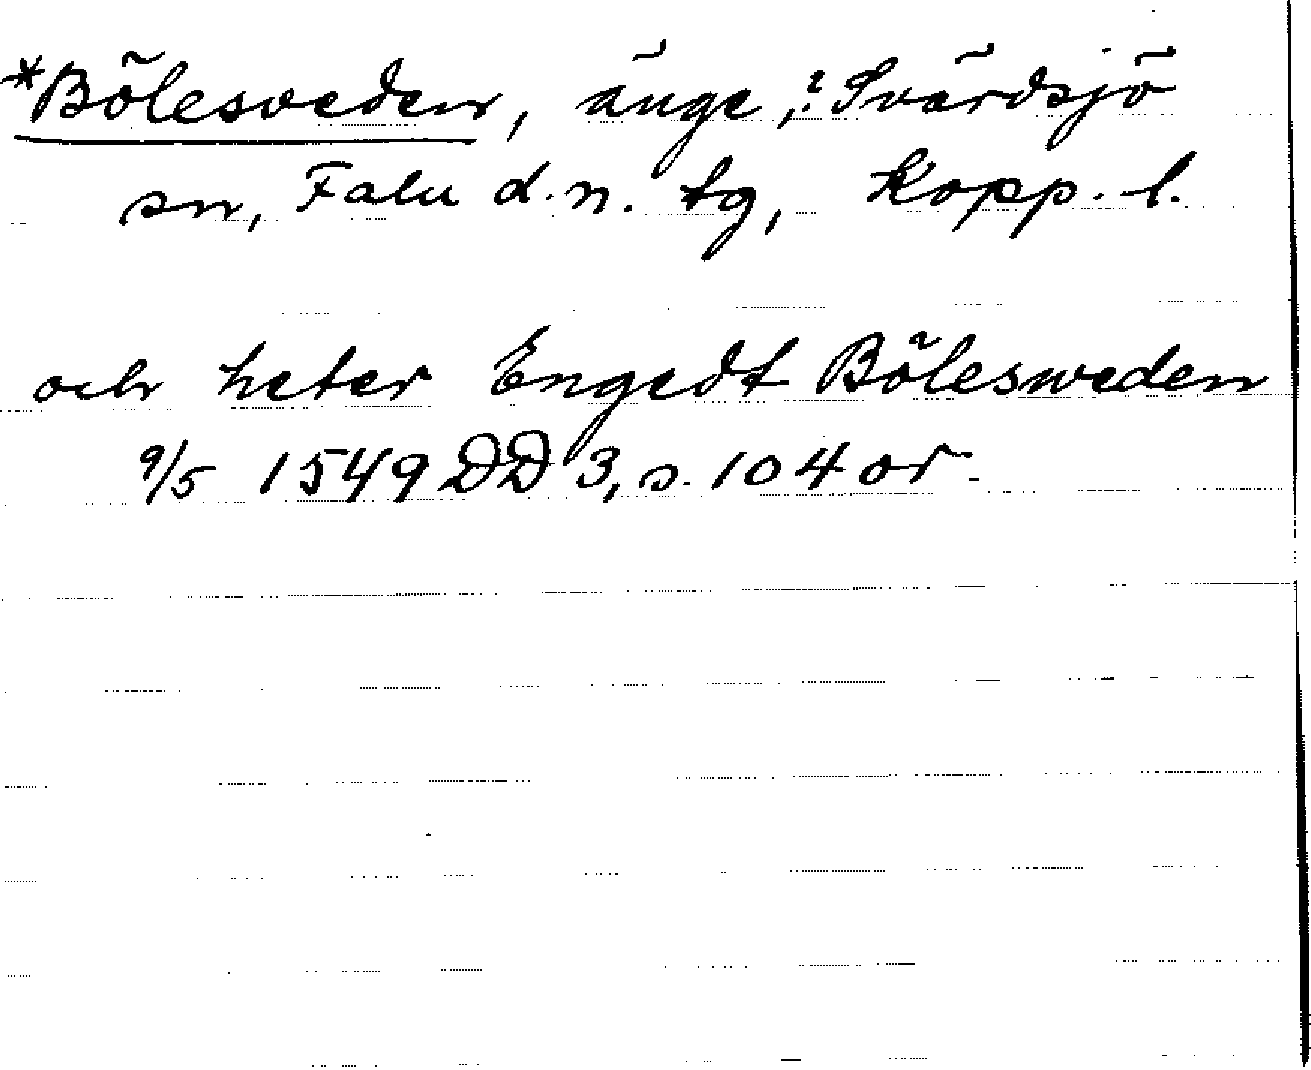 *Bölesveden, änge, ? Svärdsjö
sn, Falu d.n. tg, Kopp. l.
och heter Engedt Bölesweden
9/5 1549 DD 3, s. 104 or.